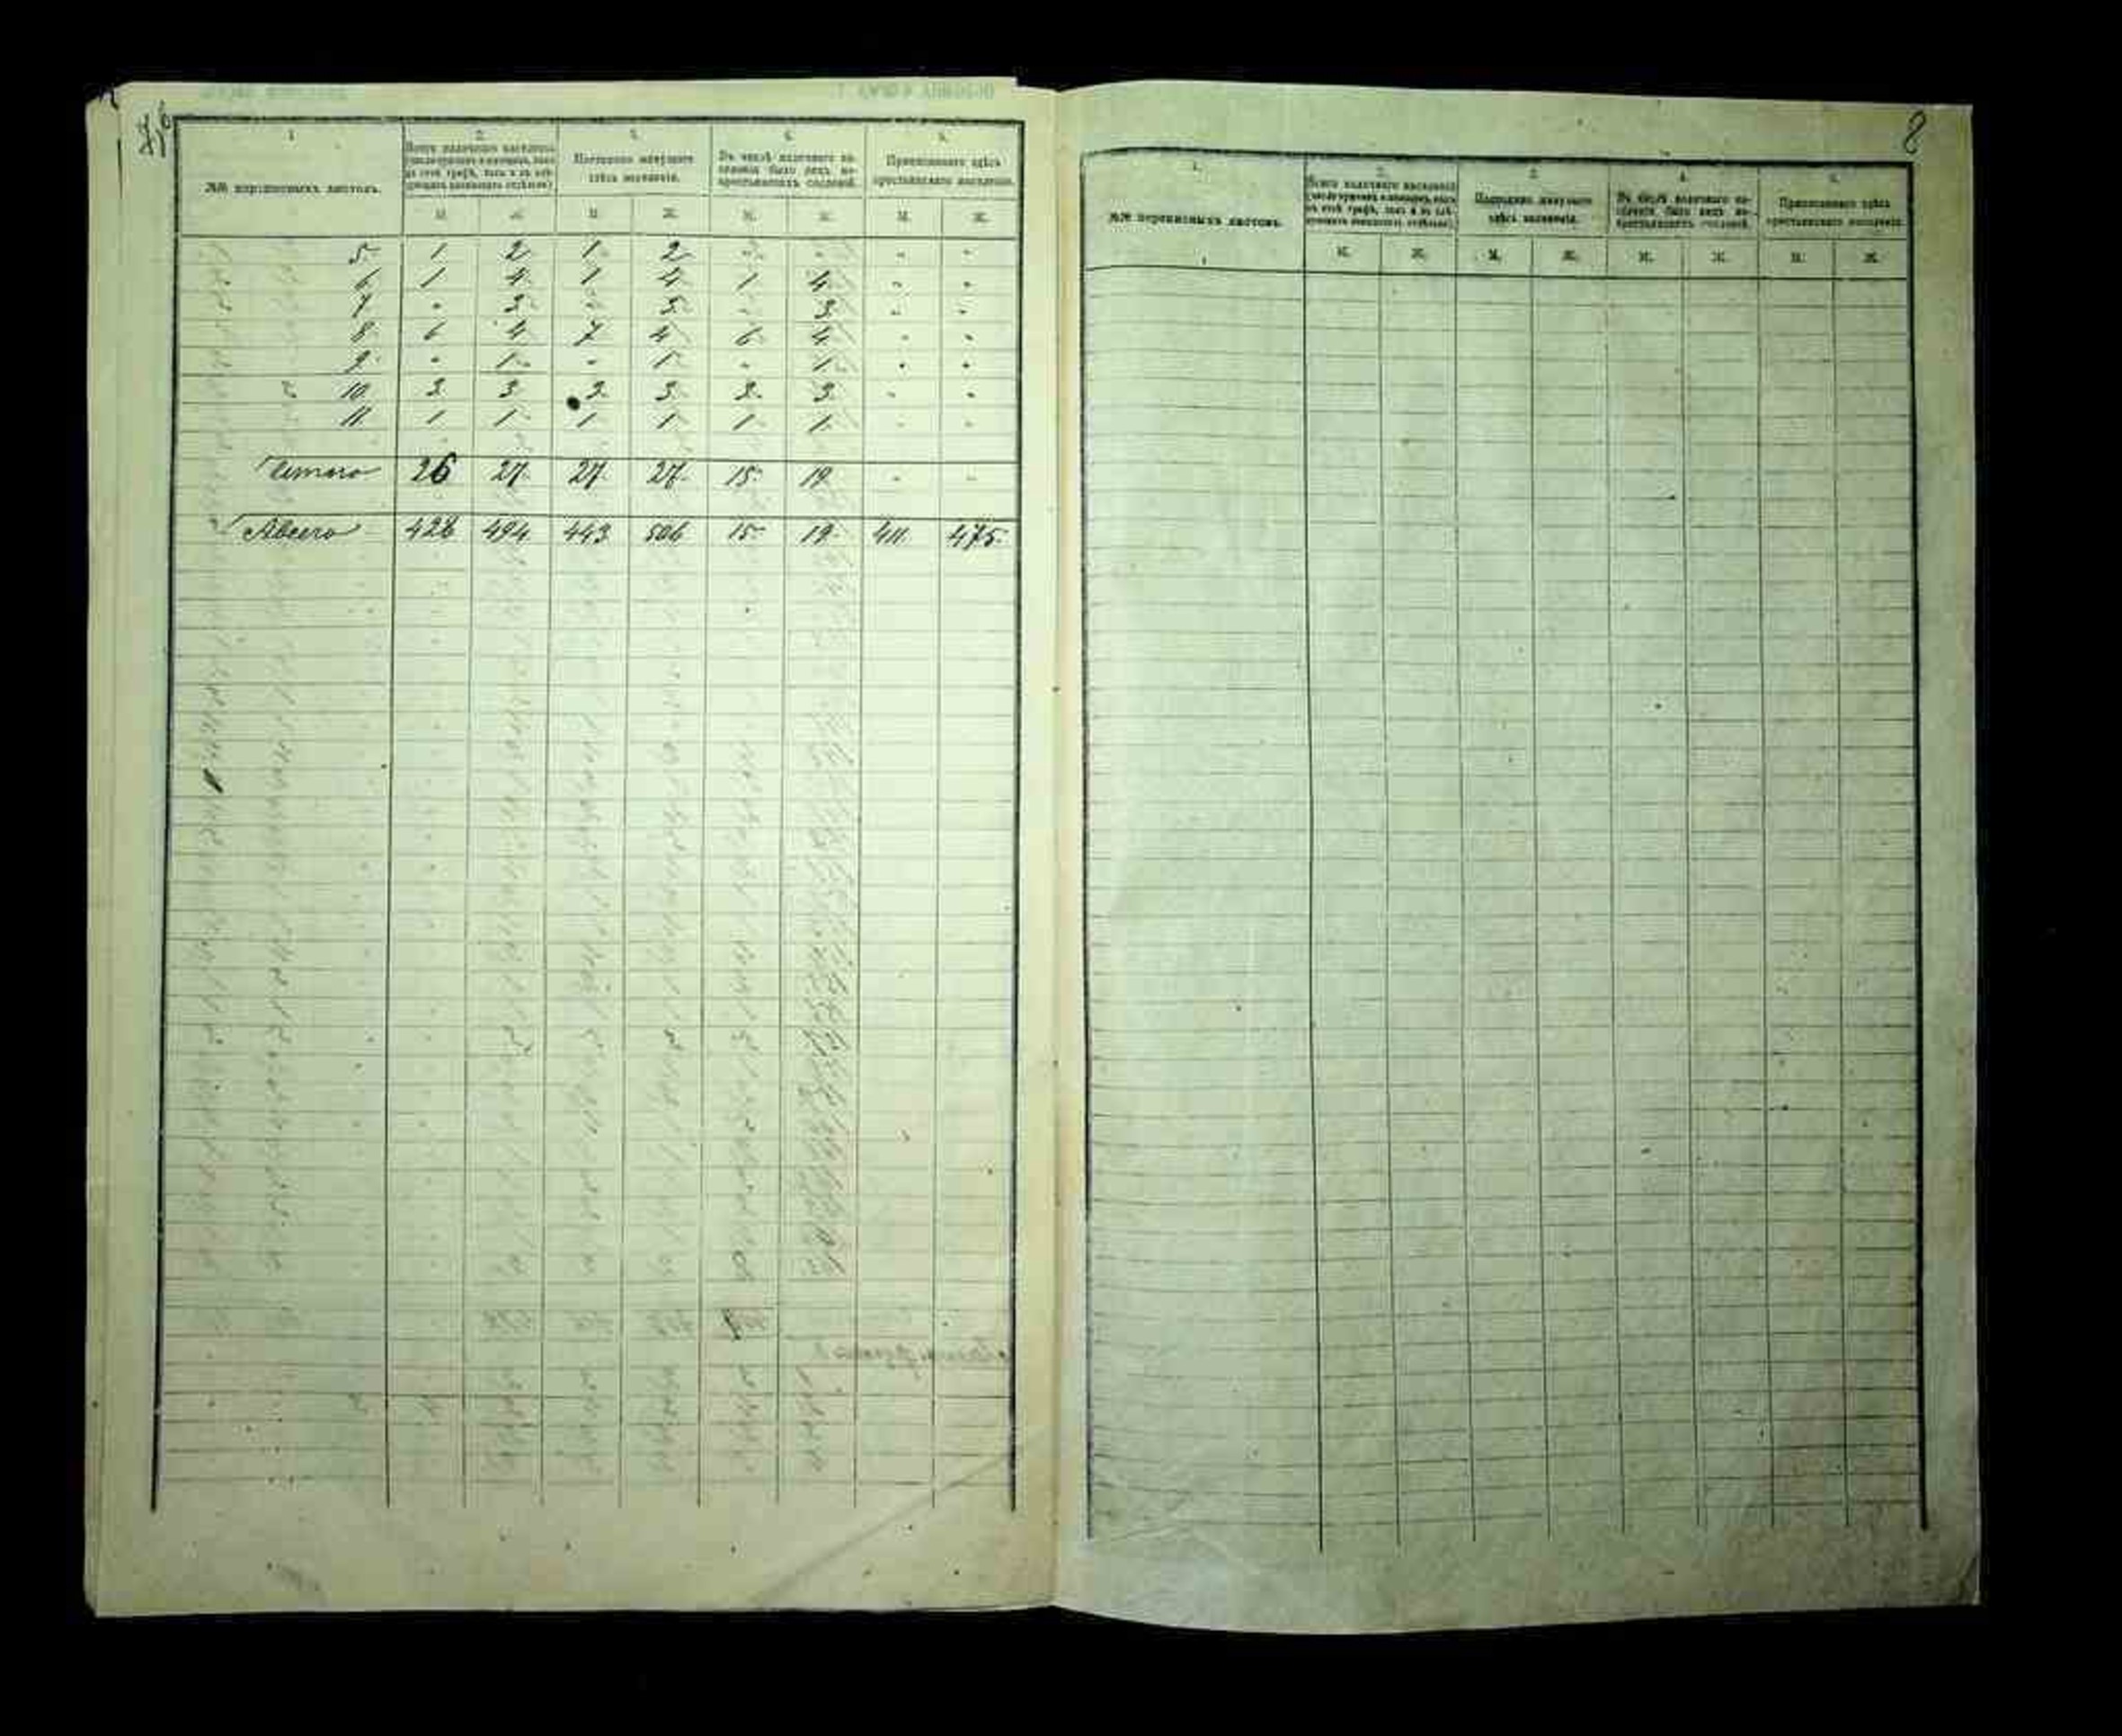 1. 2. 3. 4. 5.
№№ переписныхъ листовъ.
Всего наличнаго населенія
Постоянно живущаго здѣсь населенія.
Въ числѣ наличнаго населенія было лицъ не-крестьянскихъ сословій.
Приписаннаго здѣсь крестьянскаго населенія.
М. Ж. М. Ж. М. Ж. М. Ж.
5. 1 2 1 2 " " " "
6. 1 4 1 4 1 4 " "
7 " 3 " 3 " 3 " "
8. 6 4 7 4 6 4 " "
9. " 1 " 1 " 1 " "
10. 3 3 3 3 3. " "
11. 1 1 1 1 1 1 " "
Итого 26 27 27 27 15 19 " "
А всего 428 494 443 506 15 19 411 475
8
1. 2. 3. 4. 5.
№№ переписныхъ листовъ.
Всего наличнаго населенія
Постоянно живущаго здѣсь населенія.
Въ числѣ наличнаго населенія было лицъ не-крестьянскихъ сословій.
Приписаннаго здѣсь крестьянскаго населенія.
М. Ж. М. Ж. М. Ж. М. Ж.